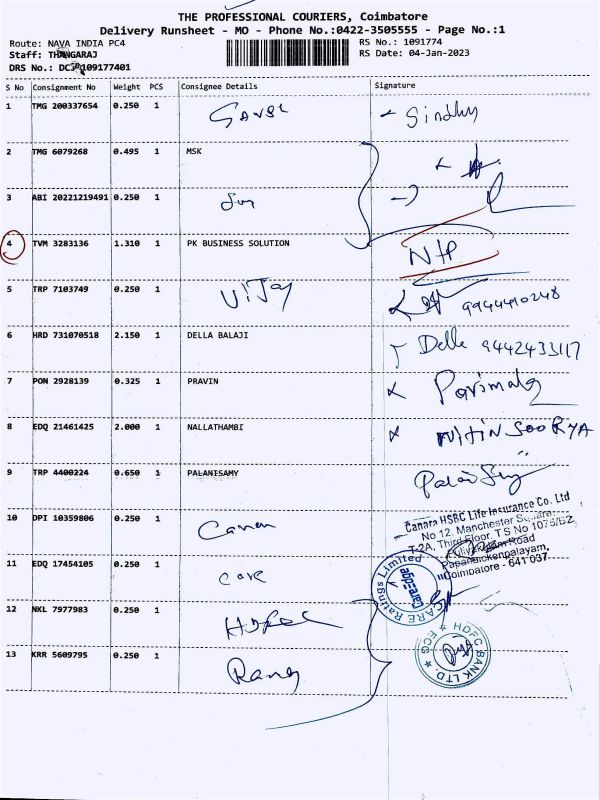 THE PROFESSIONAL COURIERS, Coimbatore
Delivery Runsheet - MO - Phone No.:0422-3505555 - Page No.:1
Route: NAVA INDIA PC4 RS No.: 1091774
Staff: THANGARAJ RS Date: 04-Jan-2023
DRS No.: 109177401
S No Consignment No Weight PCS Consignee Details Signature
1 TMG 200337654 0.250 1 Sindhy
2 TMG 6079268 0.495 1 MSK
3 ABI 20221219491 0.250 1
4 TVM 3283136 1.310 1 PK BUSINESS SOLUTION NTP
5 TRP 7103749 0.250 1 Vijay 9944410248
6 HRD 731070518 2.150 1 DELLA BALAJI Della 9442433117
7 PON 2928139 0.325 1 PRAVIN Parimala
8 EDQ 21461425 2.000 1 NALLATHAMBI NITIN SOORYA
9 TRP 4400224 0.650 1 PALANISAMY
10 DPI 10359806 0.250 1 Canara
Canara HSBC Life Insurance Co. Ltd
No 12, Manchester Square,
T-2A, Third Floor, T S No 1073/BZ,
Puliyakulam Road
Papanaickenpalayam,
Coimbatore - 641 037
11 EDQ 17454105 0.250 1 Care
CARE Ratings Limited
12 NKL 7977983 0.250 1
HDFC BANK LTD.
ECG
13 KRR 5609795 0.250 1